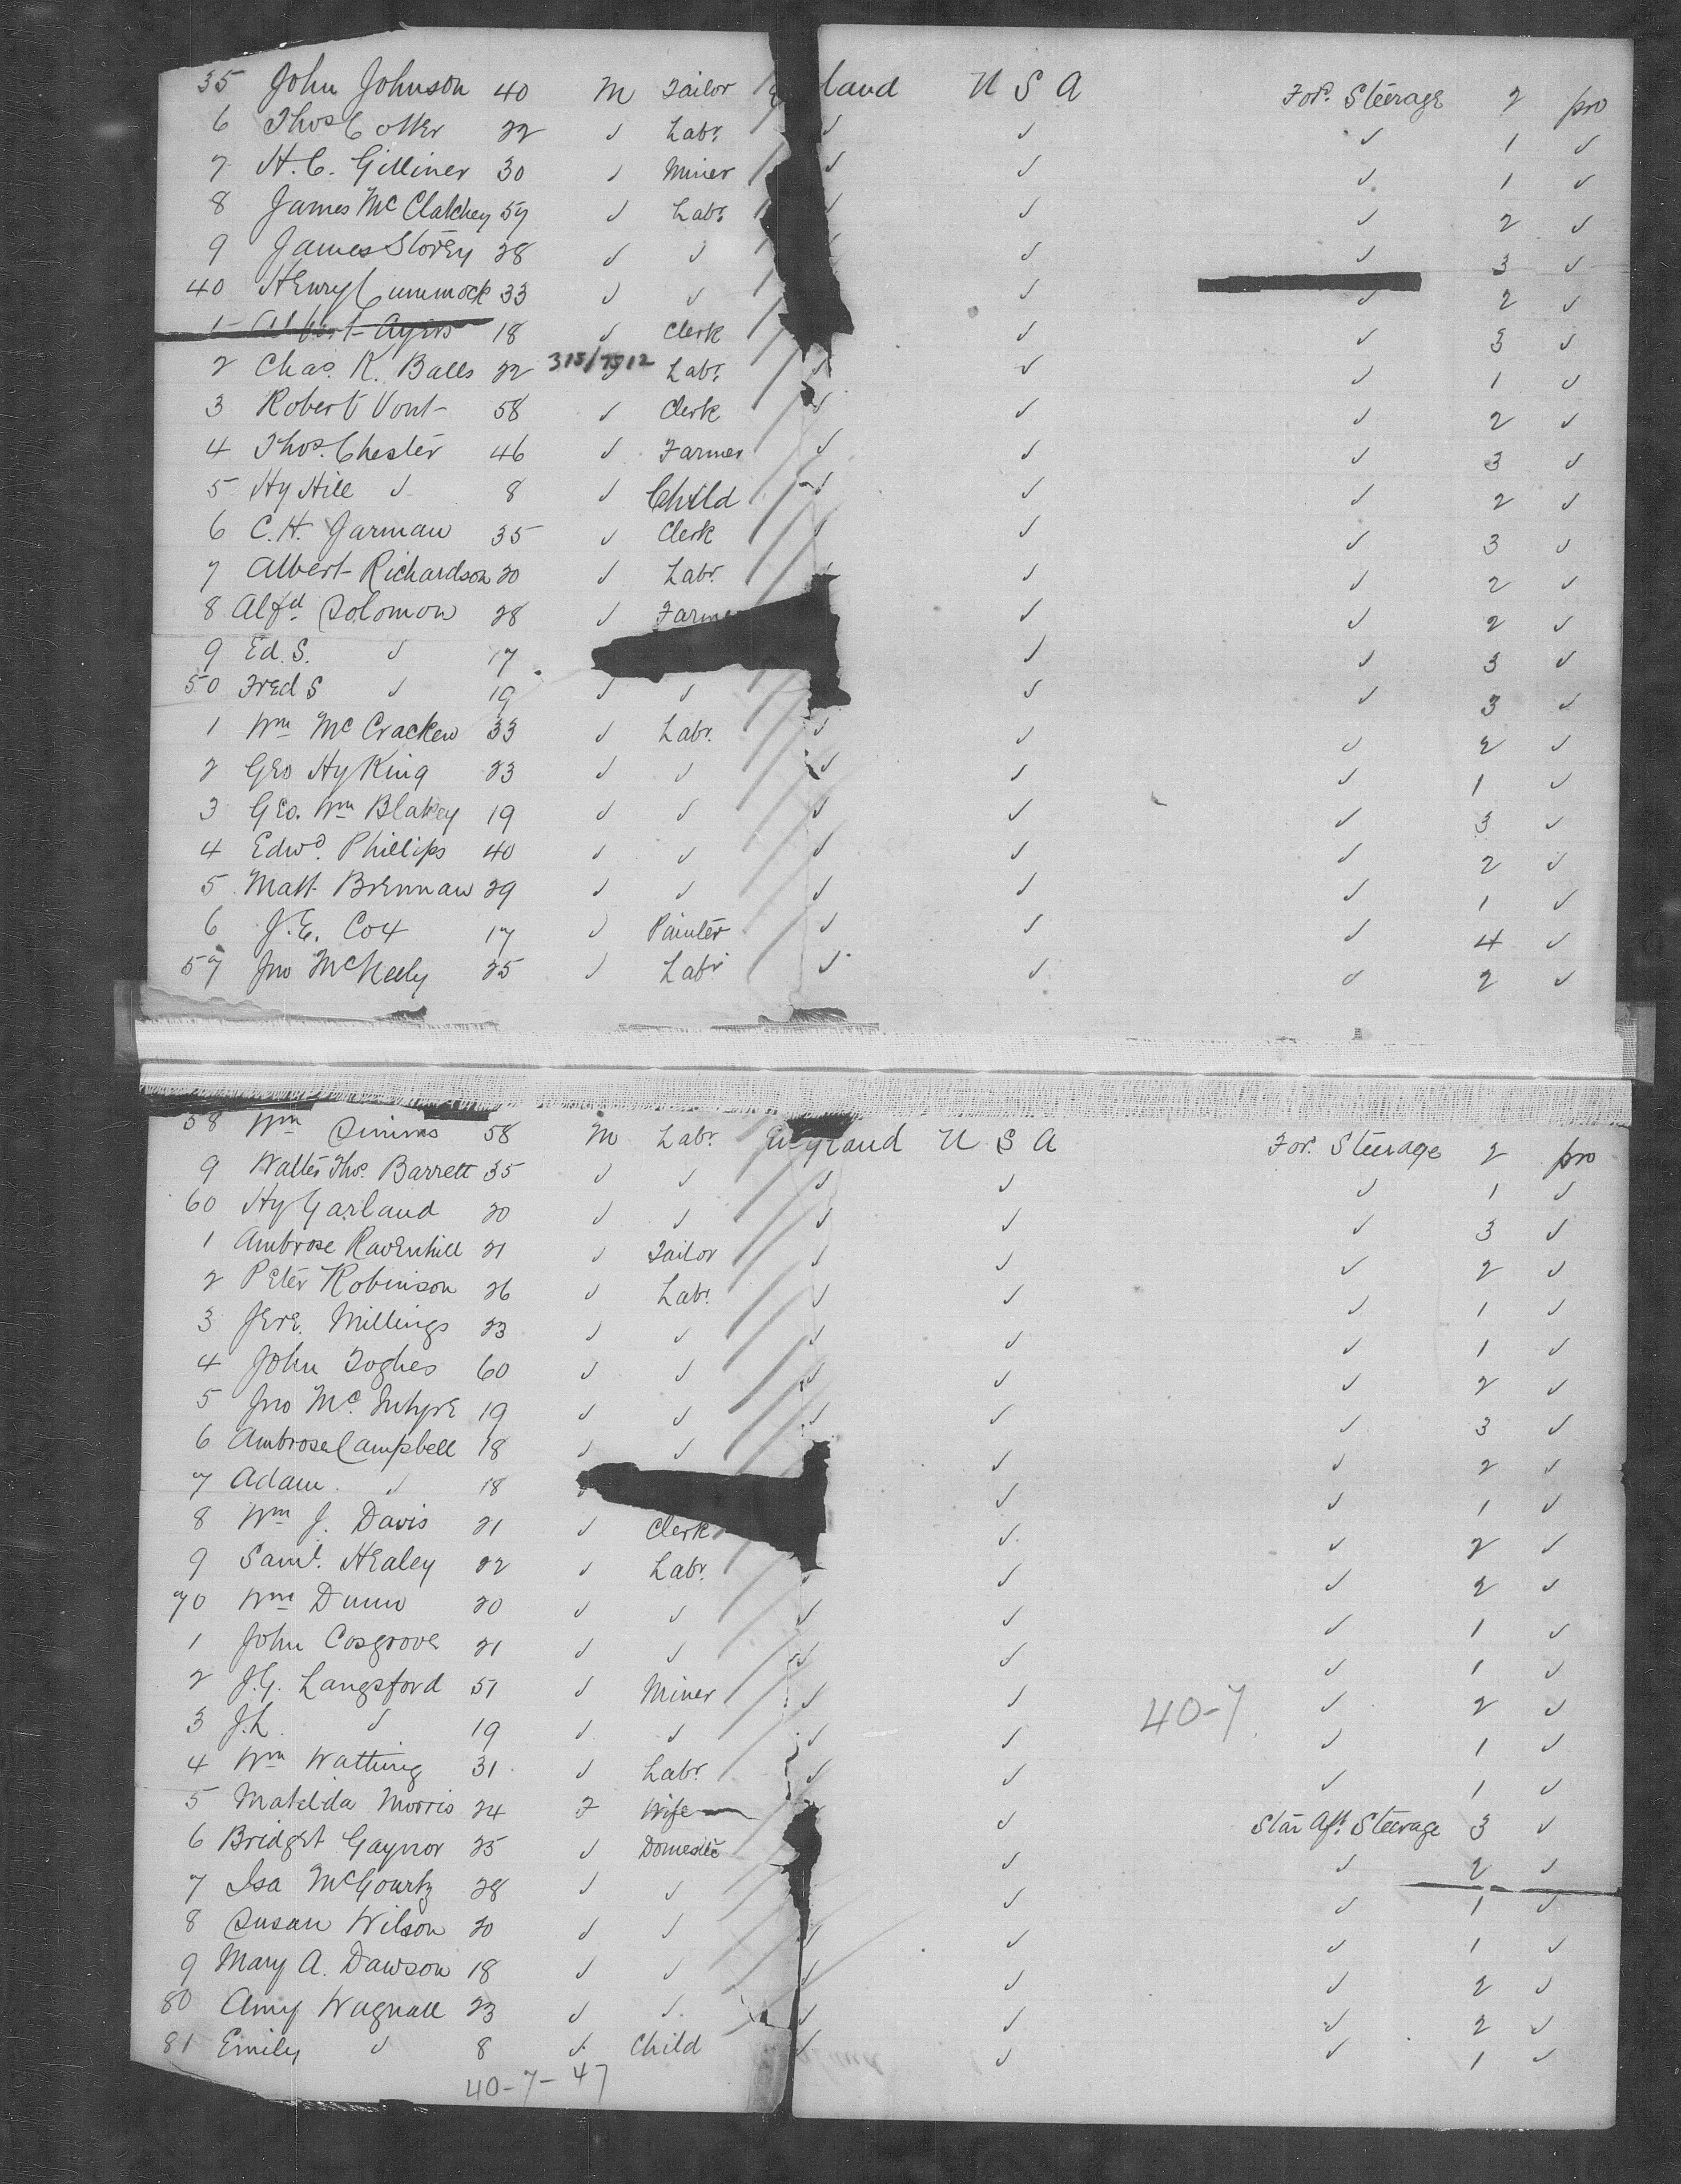 35 John Johnson 40 M Tailor land U S A For. Steerage 2 pro
6 Thos Cotter 22 ✓ Labr. ✓ ✓ ✓ 1 ✓
7 H. C. Gilliner 30 ✓ Miner ✓ ✓ ✓ 1 ✓
8 James McClatchey 57 ✓ Labr. ✓ ✓ 2 ✓
9 James Storey 28 ✓ ✓ ✓ ✓ 3 ✓
40 Henry Cummock 33 ✓ ✓ ✓ ✓ 2 ✓
1 Albert Ayers 18 ✓ Clerk ✓ ✓ 3 ✓
2 Chas. K. Balls 22 315/7512 ✓ Labr. ✓ ✓ ✓ 1 ✓
3 Robert Vont 58 ✓ Clerk ✓ ✓ ✓ 2 ✓
4 Thos. Chester 46 ✓ Farmer ✓ ✓ ✓ 3 ✓
5 Hy Hill ✓ 8 ✓ Child ✓ ✓ ✓ 2 ✓
6 C. H. Jarman 35 ✓ Clerk ✓ ✓ ✓ 3 ✓
7 Albert Richardson 20 ✓ Labr. ✓ ✓ ✓ 2 ✓
8 Alfd. Solomon 28 ✓ Farme ✓ ✓ 2 ✓
9 Ed. S. ✓ 17 ✓ ✓ 3 ✓
50 Fred S ✓ 19 ✓ ✓ ✓ ✓ 3 ✓
1 Wm McCracken 33 ✓ Labr. ✓ ✓ ✓ 2 ✓
2 Geo Hy King 23 ✓ ✓ ✓ ✓ ✓ 1 ✓
3 Geo. Wm Blakey 19 ✓ ✓ ✓ ✓ ✓ 3 ✓
4 Edwd. Phillips 40 ✓ ✓ ✓ ✓ ✓ 2 ✓
5 Matt Brennan 29 ✓ ✓ ✓ ✓ ✓ 1 ✓
6 J. E. Cox 17 ✓ Painter ✓ ✓ ✓ 4 ✓
57 Jno McNeely 25 ✓ Labr ✓ ✓ ✓ 2 ✓
58 Wm Simms 58 M Labr. England U S A For. Steerage 2 pro
9 Walter Thos. Barrett 35 ✓ ✓ ✓ ✓ ✓ 1 ✓
60 Hy Garland 20 ✓ ✓ ✓ ✓ ✓ 3 ✓
1 Ambrose Ravenhill 21 ✓ Tailor ✓ ✓ ✓ 2 ✓
2 Peter Robinson 26 ✓ Labr. ✓ ✓ ✓ 1 ✓
3 Jere. Millings 23 ✓ ✓ ✓ ✓ ✓ 1 ✓
4 John Toghes 60 ✓ ✓ ✓ ✓ ✓ 2 ✓
5 Jno Mc. Intyre 19 ✓ ✓ ✓ ✓ ✓ 3 ✓
6 Ambrose Campbell 18 ✓ ✓ ✓ ✓ 2 ✓
7 Adam ✓ 18 ✓ ✓ 1 ✓
8 Wm J. Davis 21 ✓ Clerk ✓ ✓ 2 ✓
9 Saml. Healey 22 ✓ Labr. ✓ ✓ ✓ 2 ✓
70 Wm Dunn 20 ✓ ✓ ✓ ✓ ✓ 1 ✓
1 John Cosgrove 21 ✓ ✓ ✓ ✓ ✓ 1 ✓
2 J. G. Langsford 51 ✓ Miner ✓ ✓ 40-7 ✓ 2 ✓
3 J. L. ✓ 19 ✓ ✓ ✓ ✓ ✓ 1 ✓
4 Wm Watting 31 ✓ Labr. ✓ ✓ ✓ 1 ✓
5 Matilda Morris 24 F Wife ✓ Star Aft Steerage 3 ✓
6 Bridget Gaynor 25 ✓ Domestic ✓ ✓ 2 ✓
7 Isa McGourty 28 ✓ ✓ ✓ ✓ 1 ✓
8 Susan Wilson 20 ✓ ✓ ✓ ✓ ✓ 1 ✓
9 Mary A. Dawson 18 ✓ ✓ ✓ ✓ ✓ 2 ✓
80 Amy Wagnall 23 ✓ ✓ ✓ ✓ ✓ 2 ✓
81 Emily ✓ 8 ✓ Child ✓ ✓ ✓ 1 ✓
40-7-47